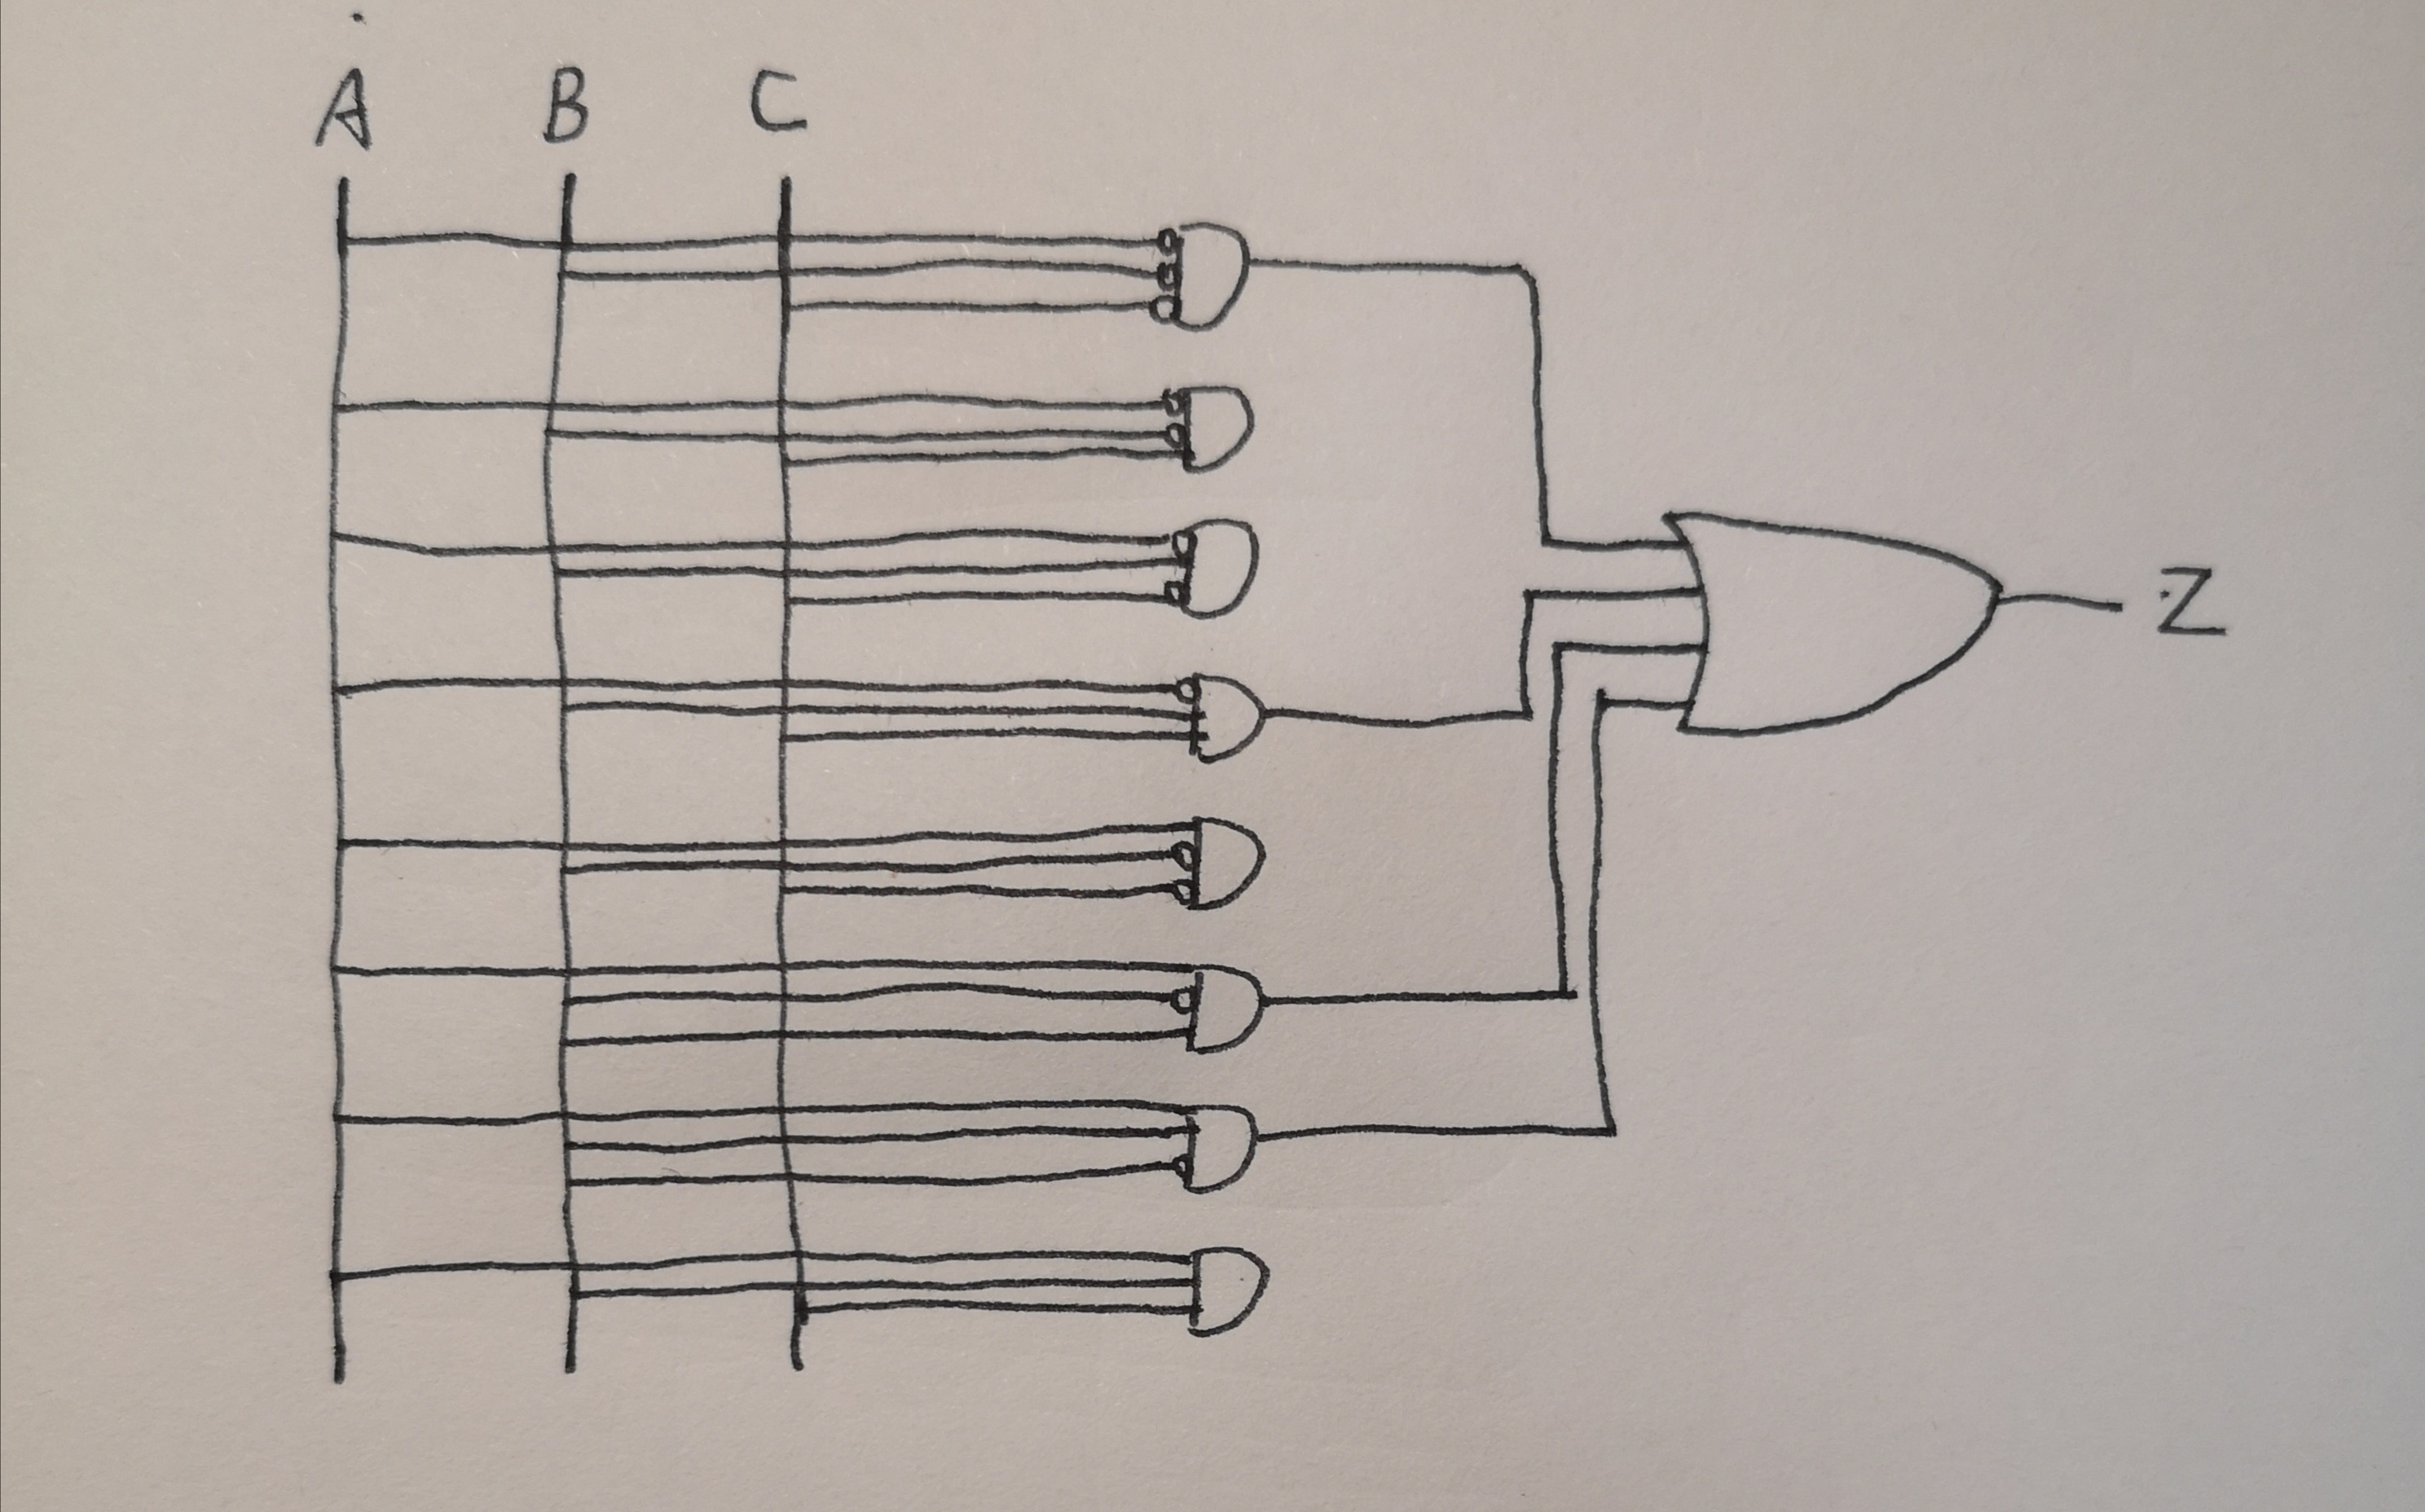 A B C
Z